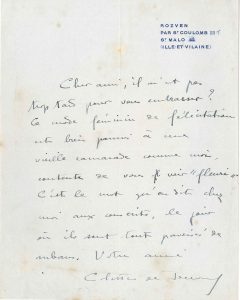 ROZVEN
PAR St COULOMB
St MALO
(ILLE-ET-VILAINE)
Cher ami, il n'est pas
trop tard pour vous embrasser ?
Ce mode féminin de félicitation
est bien permis à une
vieille camarade comme moi,
contente de vous voir "fleuri"
C'est le mot qu'on dit chez
moi aux conscrits, le jour
où ils sont tout pavoisés de
rubans. Votre amie
Colette de Jouvenel